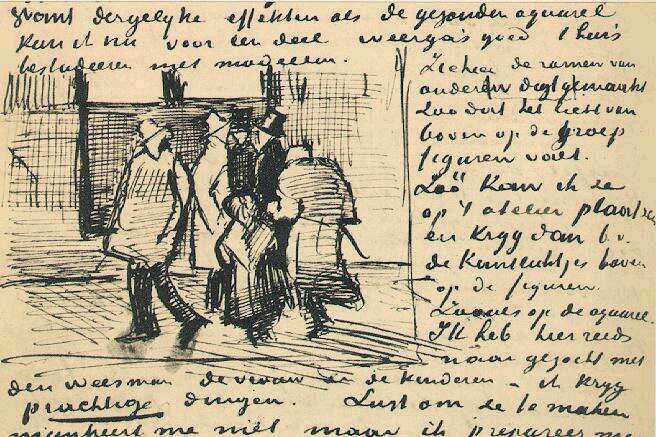 want dergelijke effekten als de gezonden aquarel
kan ik nu voor een deel weergas goed thuis
bestudeeren met modellen.
Ziehier de ramen van
onderen digt gemaakt
Zoo dat het licht van
boven op de groep
figuren valt.
Zóó kan ik ze
op 't atelier plaatsen
en kryg dan b v.
de Kantlichtjes boven
op de figuren.
Zooals op de aquarel.
Ik heb hier reeds
naar gezocht met
den weesman de vrouw en de kinderen - ik kryg
prachtige dingen. Lust om ze te maken
mankeert me niet maar ik prepareer